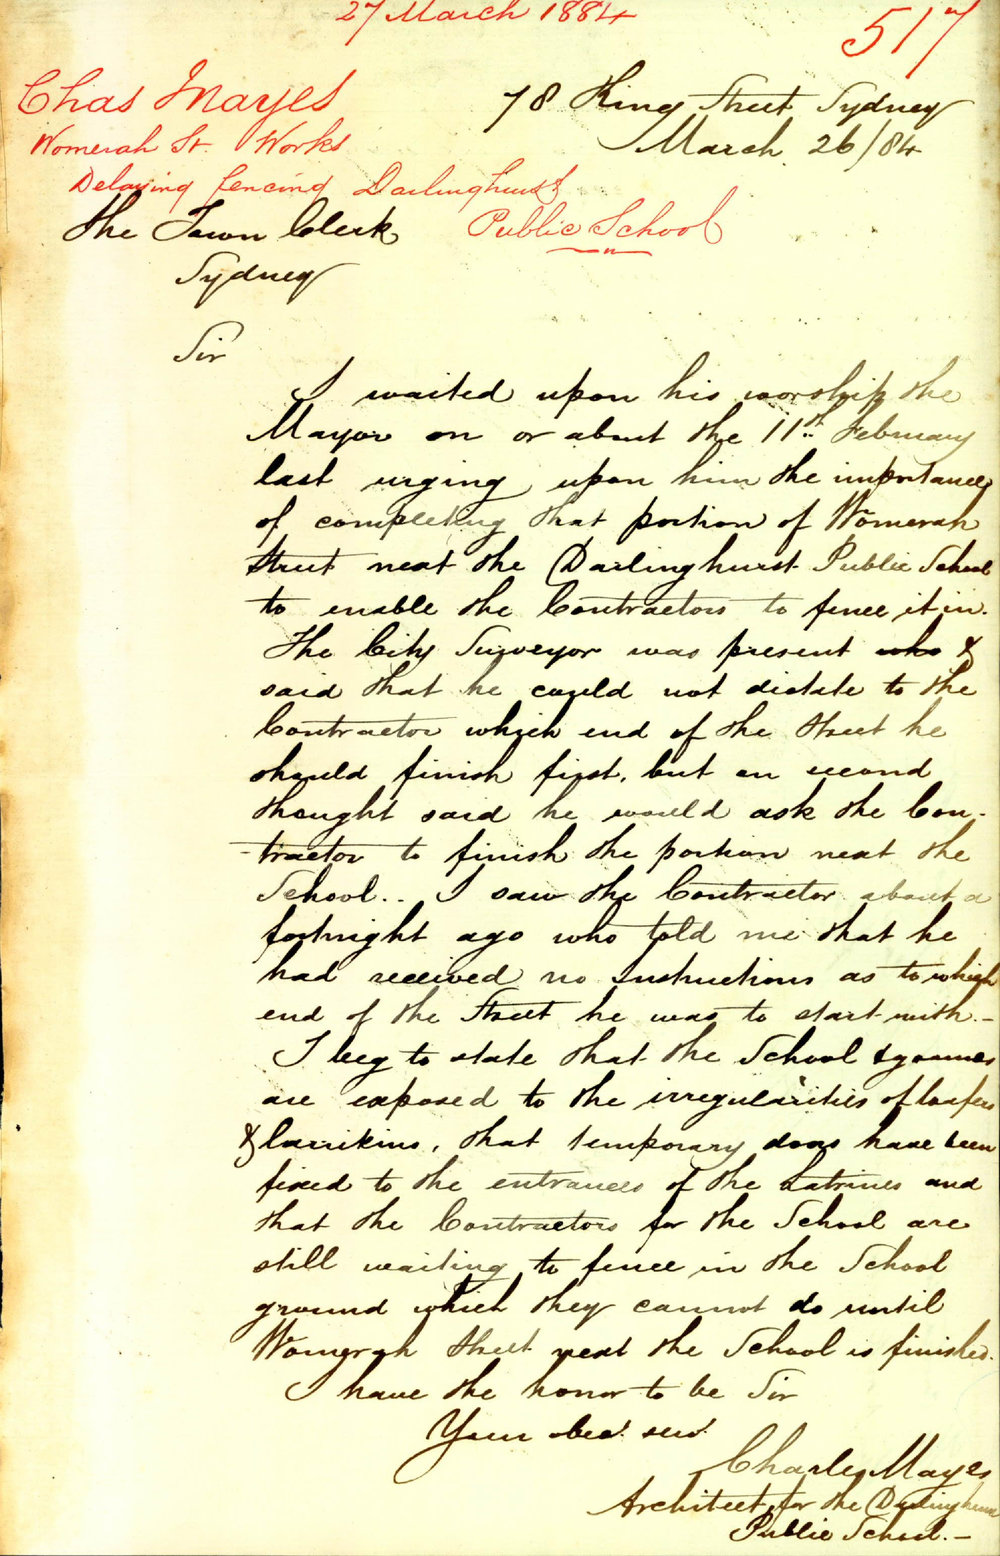 27 March 1884
517
Chas Mayes
Womerah St. Works
Delaying fencing Darlinghurst
Public School
78 King Street Sydney
March 26/84
The Town Clerk
Sydney
Sir
I waited upon his worship the
Mayor on or about the 11th February
last urging upon him the importance
of completing that portion of Womerah
Street next the Darlinghurst Public School
to enable the Contractors to fence it in.
The City Surveyor was present who &
said that he could not dictate to the
Contractor which end of the Street he
should finish first, but on second
thought said he would ask the Con-
-tractor to finish the portion next the
School.. I saw the Contractor about a
fortnight ago who told me that he
had received no instructions as to which
end of the Street he was to start with.-
I beg to state that the School
are exposed to the irregularities of loafers
& larrikins, that temporary doors have been
fixed to the entrances of the Latrines and
that the Contractors for the School are
still waiting to fence in the School
ground which they cannot do until
Womerah Street next the School is finished.
I have the honor to be Sir
Your obed. serv.
Charles Mayes
Architect for the Darlinghurst
Public School.-